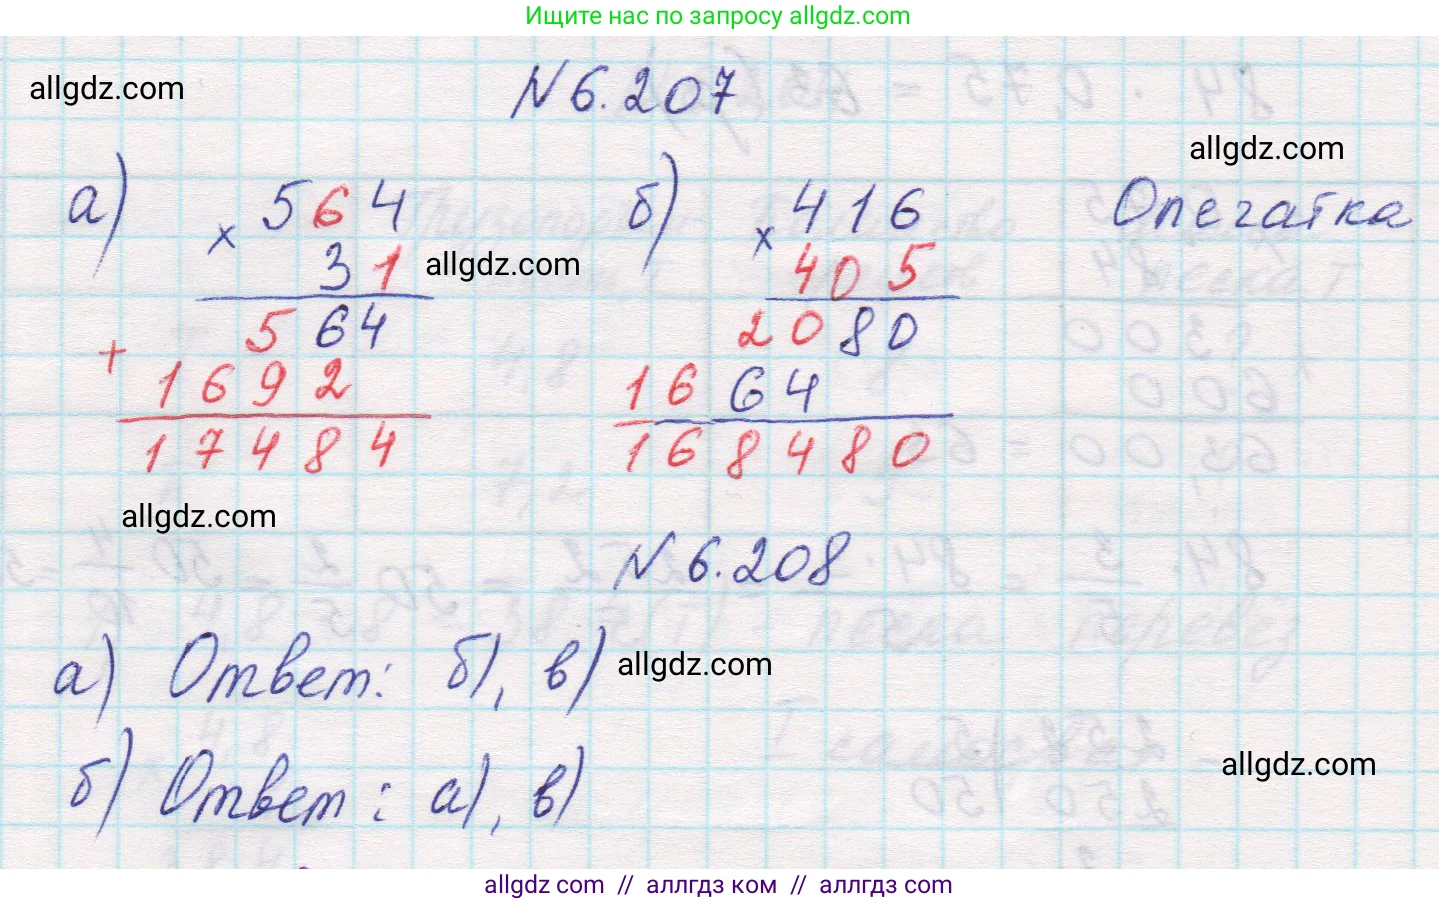 Ищите нас по запросу allgdz.com
allgdz.com
N 6.207
allgdz.com
а) × 564 б) × 416 Опечатка
31 allgdz.com 405
564 2080
+ 1692 1664
17484 168480
allgdz.com
N 6.208
а) Ответ: б), в) allgdz.com
allgdz.com
б) Ответ: а), в)
allgdz com // аллгдз ком // аллгдз com